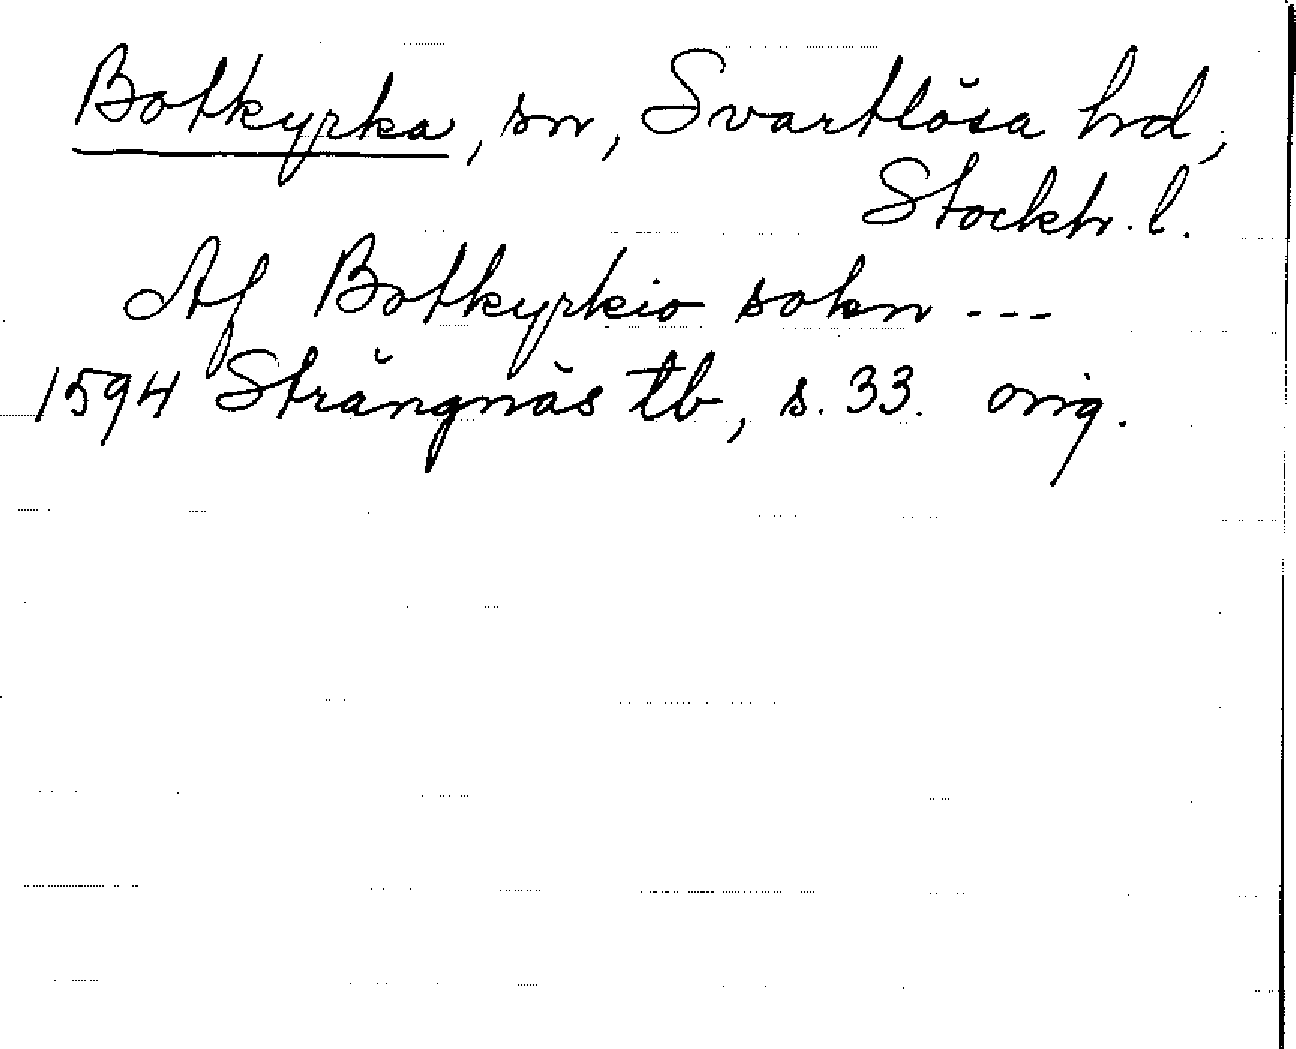 Botkyrka, sn, Svartlösa hd,
Stockh. l.
Af Botkyrkio sokn ---
1594 Strängnäs tb, s. 33. orig.